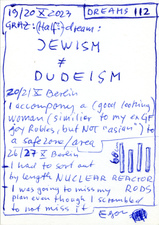 19/20 X 2023
DREAMS 112
GRAZ: (Half-)dream:
JEWISM
≠
DUDEISM
20/21 X Berlin
I accompany a (good looking
woman (similier to my ex GF
joy Robles, but NOT "asian") to
a safe zone/area
26/27 X Berlin
I had to sort out
by length NUCLEAR REACTOR
RODS
I was going to miss my
plan even though I scrambled
to not miss it